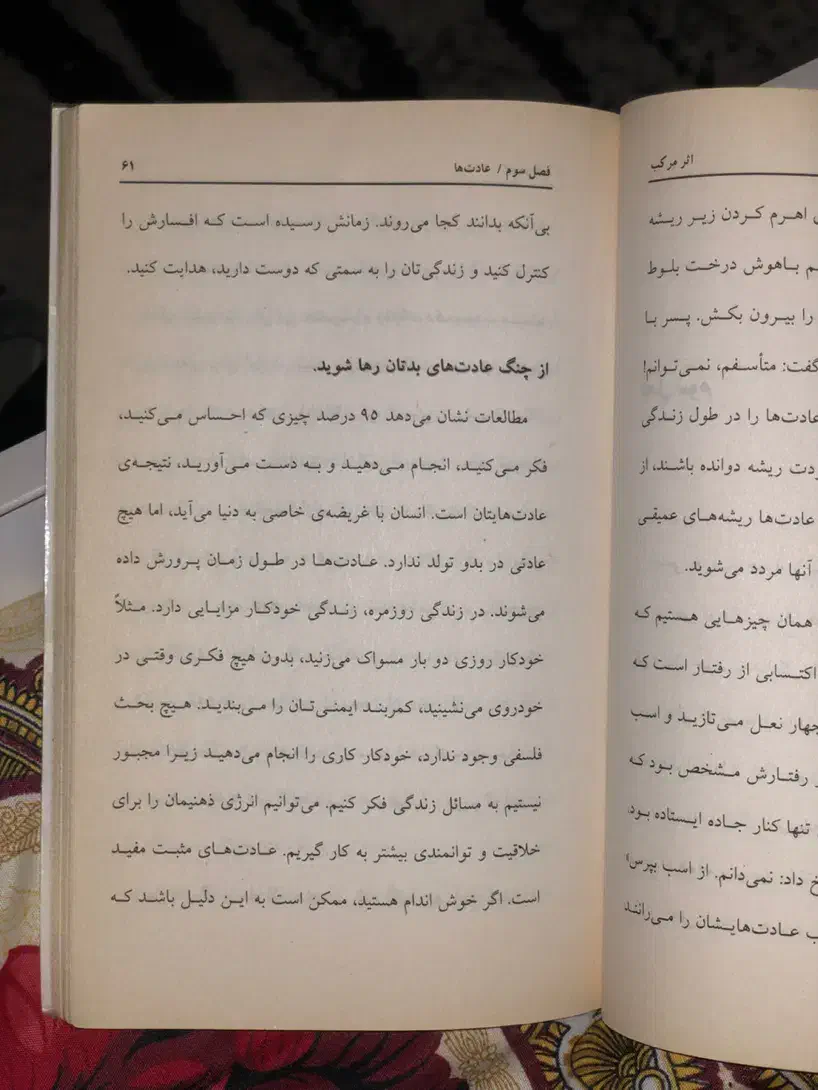 اثر مرکب
اهرم کردن زیر ریشه
باهوش درخت بلوط
را بیرون بکش. پسر با
گفت: متأسفم، نمی‌توانم!
عادت‌ها را در طول زندگی
ریشه دوانده باشند، از
عادت‌ها ریشه‌های عمیقی
آنها مردد می‌شوید.
همان چیزهایی هستیم که
اکتسابی از رفتار است که
چهار نعل می‌تازید و اسب
رفتارش مشخص بود که
تنها کنار جاده ایستاده بود،
داد: نمی‌دانم. از اسب بپرس!
عادت‌هایشان را می‌رانند
فصل سوم / عادت‌ها ۶۱
بی‌آنکه بدانند کجا می‌روند. زمانش رسیده است که افسارش را
کنترل کنید و زندگی‌تان را به سمتی که دوست دارید، هدایت کنید.
از چنگ عادت‌های بدتان رها شوید.
مطالعات نشان می‌دهد ۹۵ درصد چیزی که احساس می‌کنید،
فکر می‌کنید، انجام می‌دهید و به دست می‌آورید، نتیجه‌ی
عادت‌هایتان است. انسان با غریضه‌ی خاصی به دنیا می‌آید، اما هیچ
عادتی در بدو تولد ندارد. عادت‌ها در طول زمان پرورش داده
می‌شوند. در زندگی روزمره، زندگی خودکار مزایایی دارد. مثلاً
خودکار روزی دو بار مسواک می‌زنید، بدون هیچ فکری وقتی در
خودروی می‌نشینید، کمربند ایمنی‌تان را می‌بندید. هیچ بحث
فلسفی وجود ندارد، خودکار کاری را انجام می‌دهید زیرا مجبور
نیستیم به مسائل زندگی فکر کنیم. می‌توانیم انرژی ذهنیمان را برای
خلاقیت و توانمندی بیشتر به کار گیریم. عادت‌های مثبت مفید
است. اگر خوش اندام هستید، ممکن است به این دلیل باشد که